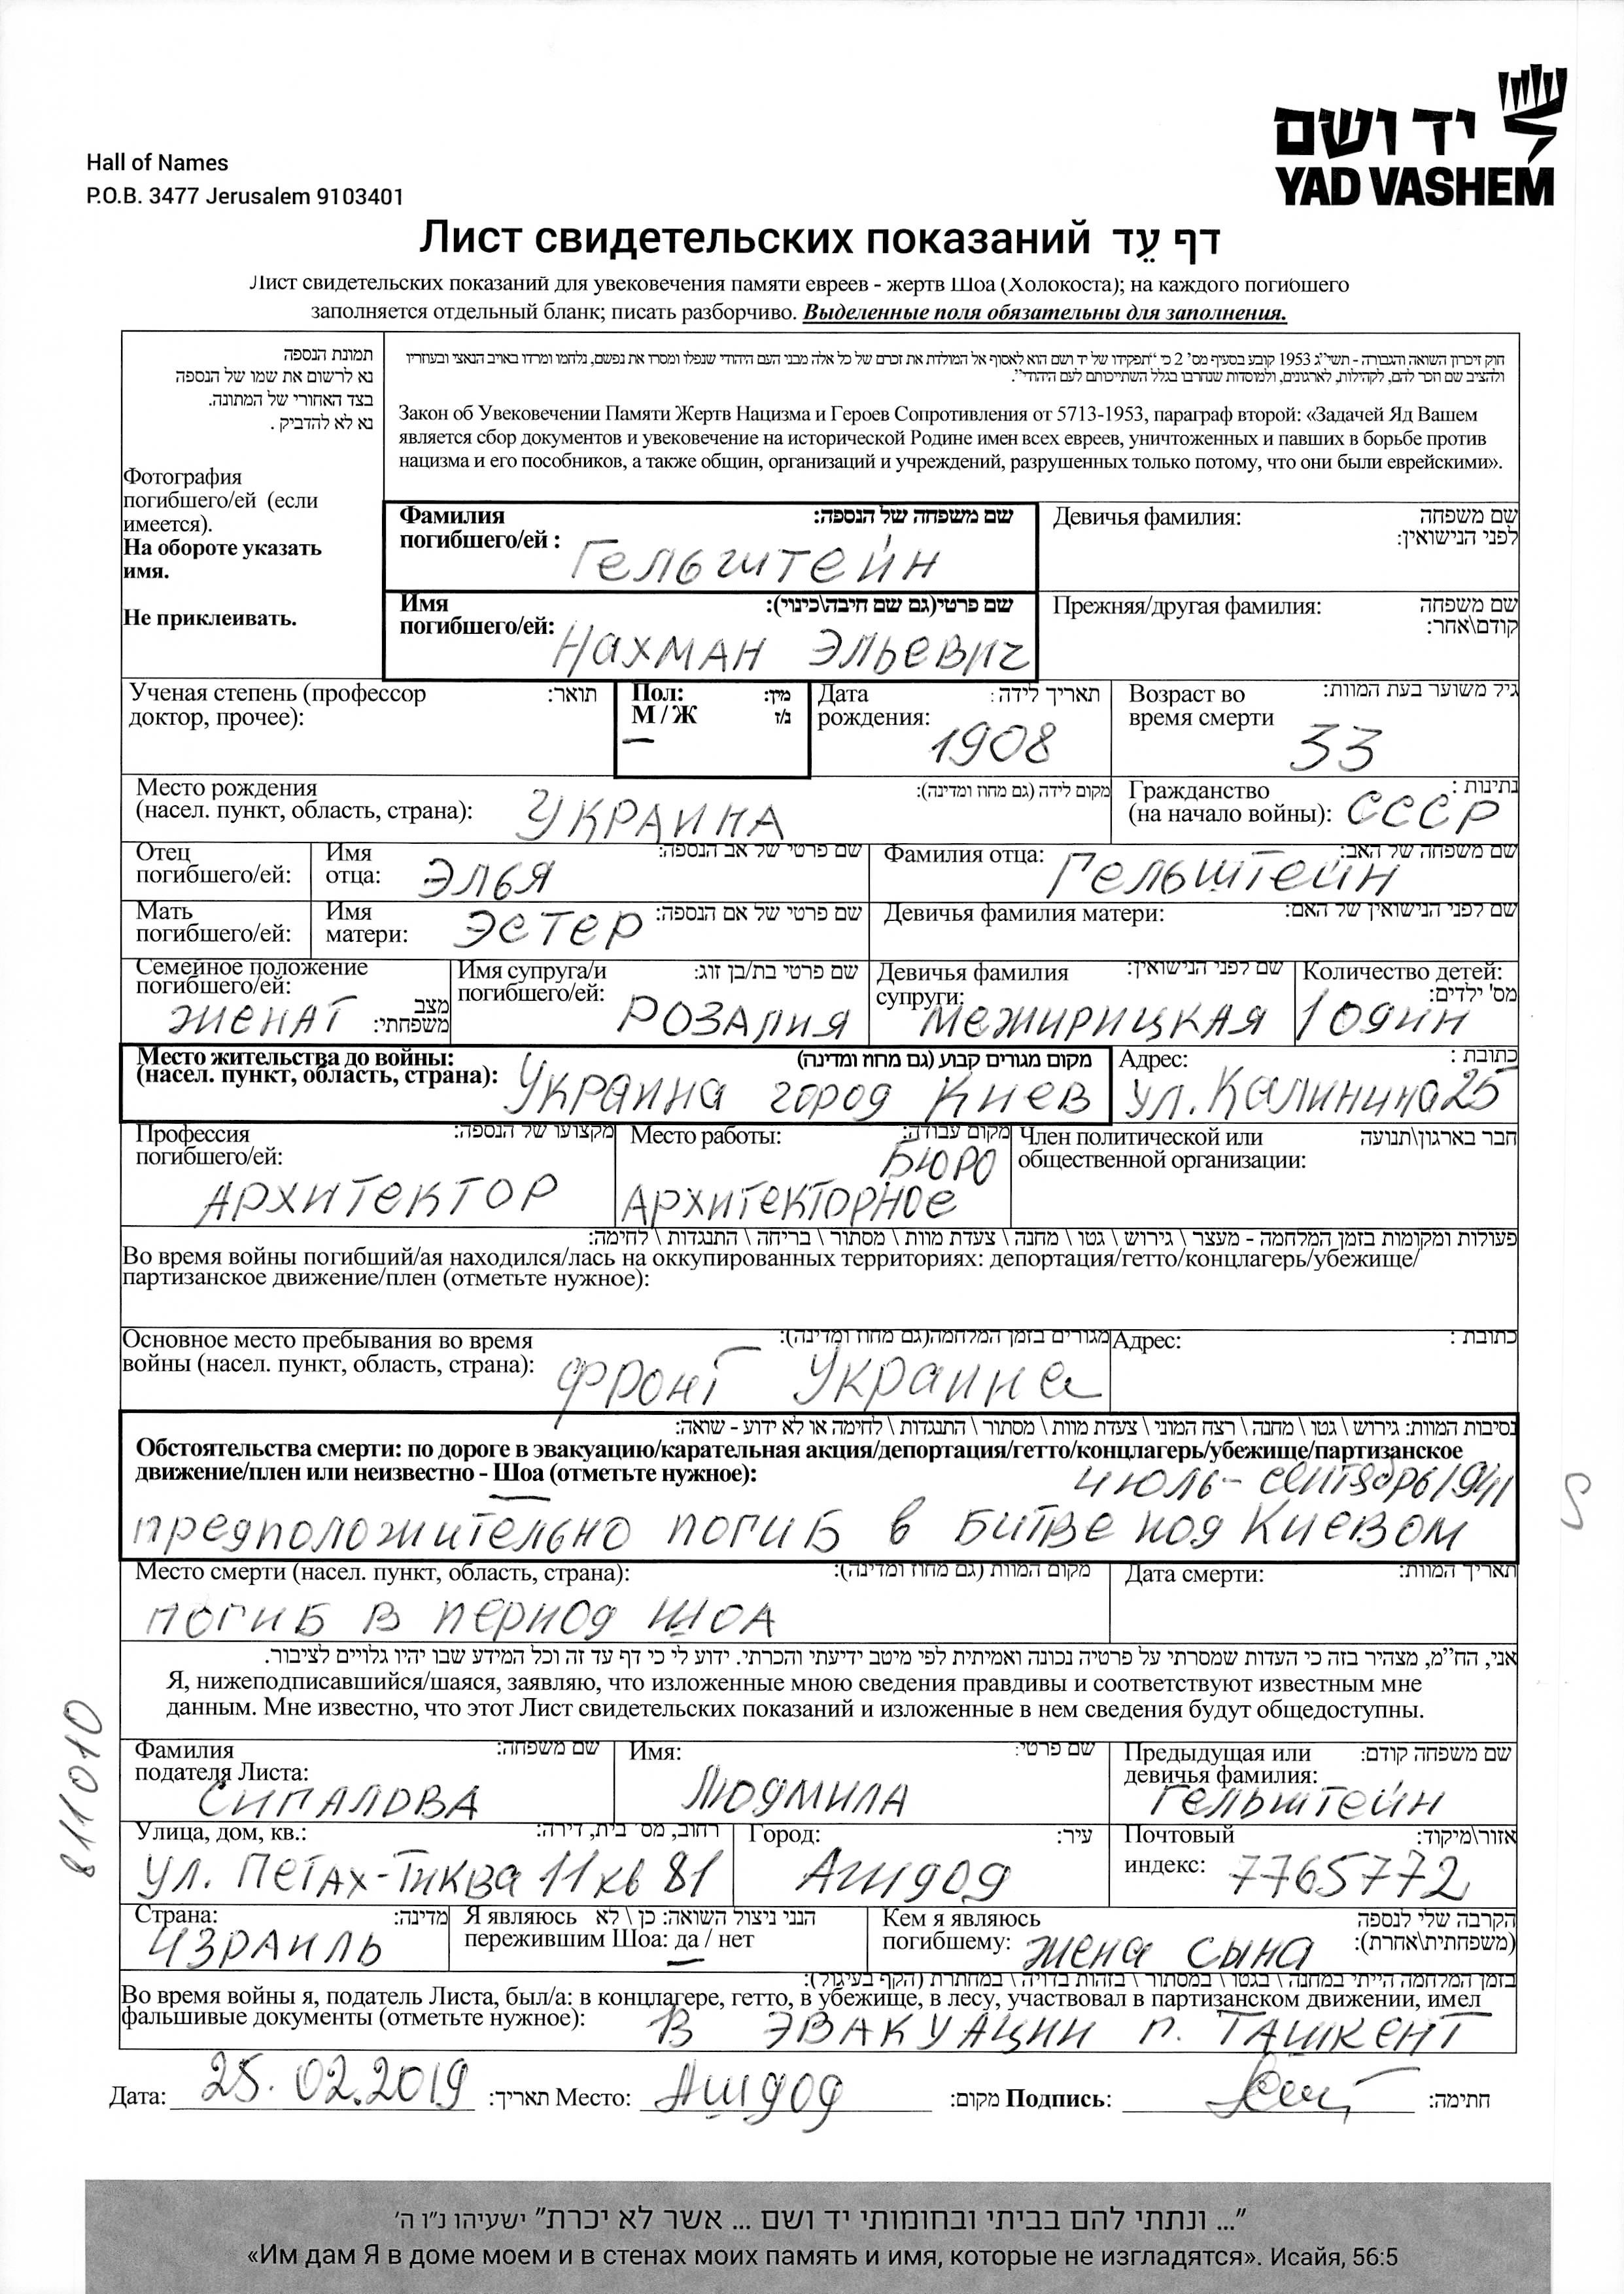 יד ושם
YAD VASHEM
Hall of Names
P.O.B. 3477 Jerusalem 9103401
Лист свидетельских показаний דף עֵד
Лист свидетельских показаний для увековечения памяти евреев - жертв Шоа (Холокоста); на каждого погибшего
заполняется отдельный бланк; писать разборчиво. Выделенные поля обязательны для заполнения.
תמונת הנספה
נא לרשום את שמו של הנספה
בצד האחורי של התמונה.
נא לא להדביק .
Фотография
погибшего/ей (если
имеется).
На обороте указать
имя.
Не приклеивать.
חוק זיכרון השואה והגבורה - תשי"ג 1953 קובע בסעיף מס' 2 כי "תפקידו של יד ושם הוא לאסוף אל המולדת את זכרם של כל אלה מבני העם היהודי שנפלו ומסרו את נפשם, נלחמו ומרדו באויב הנאצי ובעוזריו
ולהציב שם וזכר להם, לקהילות, לארגונים, ולמוסדות שנחרבו בגלל השתייכותם לעם היהודי".
Закон об Увековечении Памяти Жертв Нацизма и Героев Сопротивления от 5713-1953, параграф второй: «Задачей Яд Вашем
является сбор документов и увековечение на исторической Родине имен всех евреев, уничтоженных и павших в борьбе против
нацизма и его пособников, а также общин, организаций и учреждений, разрушенных только потому, что они были еврейскими».
Фамилия שם משפחה של הנספה:
погибшего/ей : Гельштейн
Девичья фамилия: שם משפחה
לפני הנישואין:
Имя שם פרטי(גם שם חיבה\כינוי):
погибшего/ей: Нахман Эльевич
Прежняя/другая фамилия: שם משפחה
קודם\אחר:
Ученая степень (профессор תואר:
доктор, прочее):
Пол: מין:
М / Ж ז/נ
Дата תאריך לידה :
рождения: 1908
Возраст во גיל משוער בעת המוות:
время смерти 33
Место рождения מקום לידה (גם מחוז ומדינה):
(насел. пункт, область, страна): Украина
Гражданство נתינות :
(на начало войны): СССР
Отец
погибшего/ей:
Имя שם פרטי של אב הנספה:
отца: Элья
Фамилия отца: שם משפחה של האב:
Гельштейн
Мать
погибшего/ей:
Имя שם פרטי של אם הנספה:
матери: Эстер
Девичья фамилия матери: שם לפני הנישואין של האם:
Семейное положение
погибшего/ей: מצב
женат משפחתי:
Имя супруга/и שם פרטי בת/בן זוג:
погибшего/ей: Розалия
Девичья фамилия שם לפני הנישואין:
супруги: Межирицкая
Количество детей:
מס' ילדים:
1 один
Место жительства до войны: מקום מגורים קבוע (גם מחוז ומדינה)
(насел. пункт, область, страна): Украина город Киев
Адрес: כתובת :
ул. Калинина 25
Профессия מקצועו של הנספה:
погибшего/ей:
Архитектор
Место работы: מקום עבודה:
Бюро
Архитекторное
Член политической или חבר בארגון\תנועה
общественной организации:
פעולות ומקומות בזמן המלחמה - מעצר \ גירוש \ גטו \ מחנה \ צעדת מוות \ מסתור \ בריחה \ התנגדות \ לחימה:
Во время войны погибший/ая находился/лась на оккупированных территориях: депортация/гетто/концлагерь/убежище/
партизанское движение/плен (отметьте нужное):
Основное место пребывания во время מגורים בזמן המלחמה(גם מחוז ומדינה):
войны (насел. пункт, область, страна): фронт Украина
Адрес: כתובת :
נסיבות המוות: גירוש \ גטו \ מחנה \ רצח המוני \ צעדת מוות \ מסתור \ התנגדות \ לחימה או לא ידוע - שואה:
Обстоятельства смерти: по дороге в эвакуацию/карательная акция/депортация/гетто/концлагерь/убежище/партизанское
движение/плен или неизвестно - Шоа (отметьте нужное): июль- сентябрь 1941
предположительно погиб в битве под Киевом
Место смерти (насел. пункт, область, страна): מקום המוות (גם מחוז ומדינה):
погиб в период Шоа
Дата смерти: תאריך המוות:
אני, הח"מ, מצהיר בזה כי העדות שמסרתי על פרטיה נכונה ואמיתית לפי מיטב ידיעתי והכרתי. ידוע לי כי דף עד זה וכל המידע שבו יהיו גלויים לציבור.
Я, нижеподписавшийся/шаяся, заявляю, что изложенные мною сведения правдивы и соответствуют известным мне
данным. Мне известно, что этот Лист свидетельских показаний и изложенные в нем сведения будут общедоступны.
Фамилия שם משפחה:
подателя Листа:
Сипалова
Имя: שם פרטי:
Людмила
Предыдущая или שם משפחה קודם:
девичья фамилия:
Гельштейн
Улица, дом, кв.: רחוב, מס' בית, דירה:
ул. Петах-Тиква 11 кв 81
Город: עיר:
Ашдод
Почтовый אזור\מיקוד:
индекс: 7765772
Страна: מדינה:
Израиль
Я являюсь הנני ניצול השואה: כן \ לא
пережившим Шоа: да / нет
Кем я являюсь הקרבה שלי לנספה
погибшему: жена сына (משפחתית\אחרת):
בזמן המלחמה הייתי במחנה \ בגטו \ במסתור \ בזהות בדויה \ במחתרת (הקף בעיגול):
Во время войны я, податель Листа, был/а: в концлагере, гетто, в убежище, в лесу, участвовал в партизанском движении, имел
фальшивые документы (отметьте нужное): В эвакуации г. Ташкент
Дата: 25.02.2019 תאריך: Место: Ашдод מקום: Подпись: חתימה:
811010
"... ונתתי להם בביתי ובחומותי יד ושם ... אשר לא יכרת" ישעיהו נ"ו ה'
«Им дам Я в доме моем и в стенах моих память и имя, которые не изгладятся». Исайя, 56:5